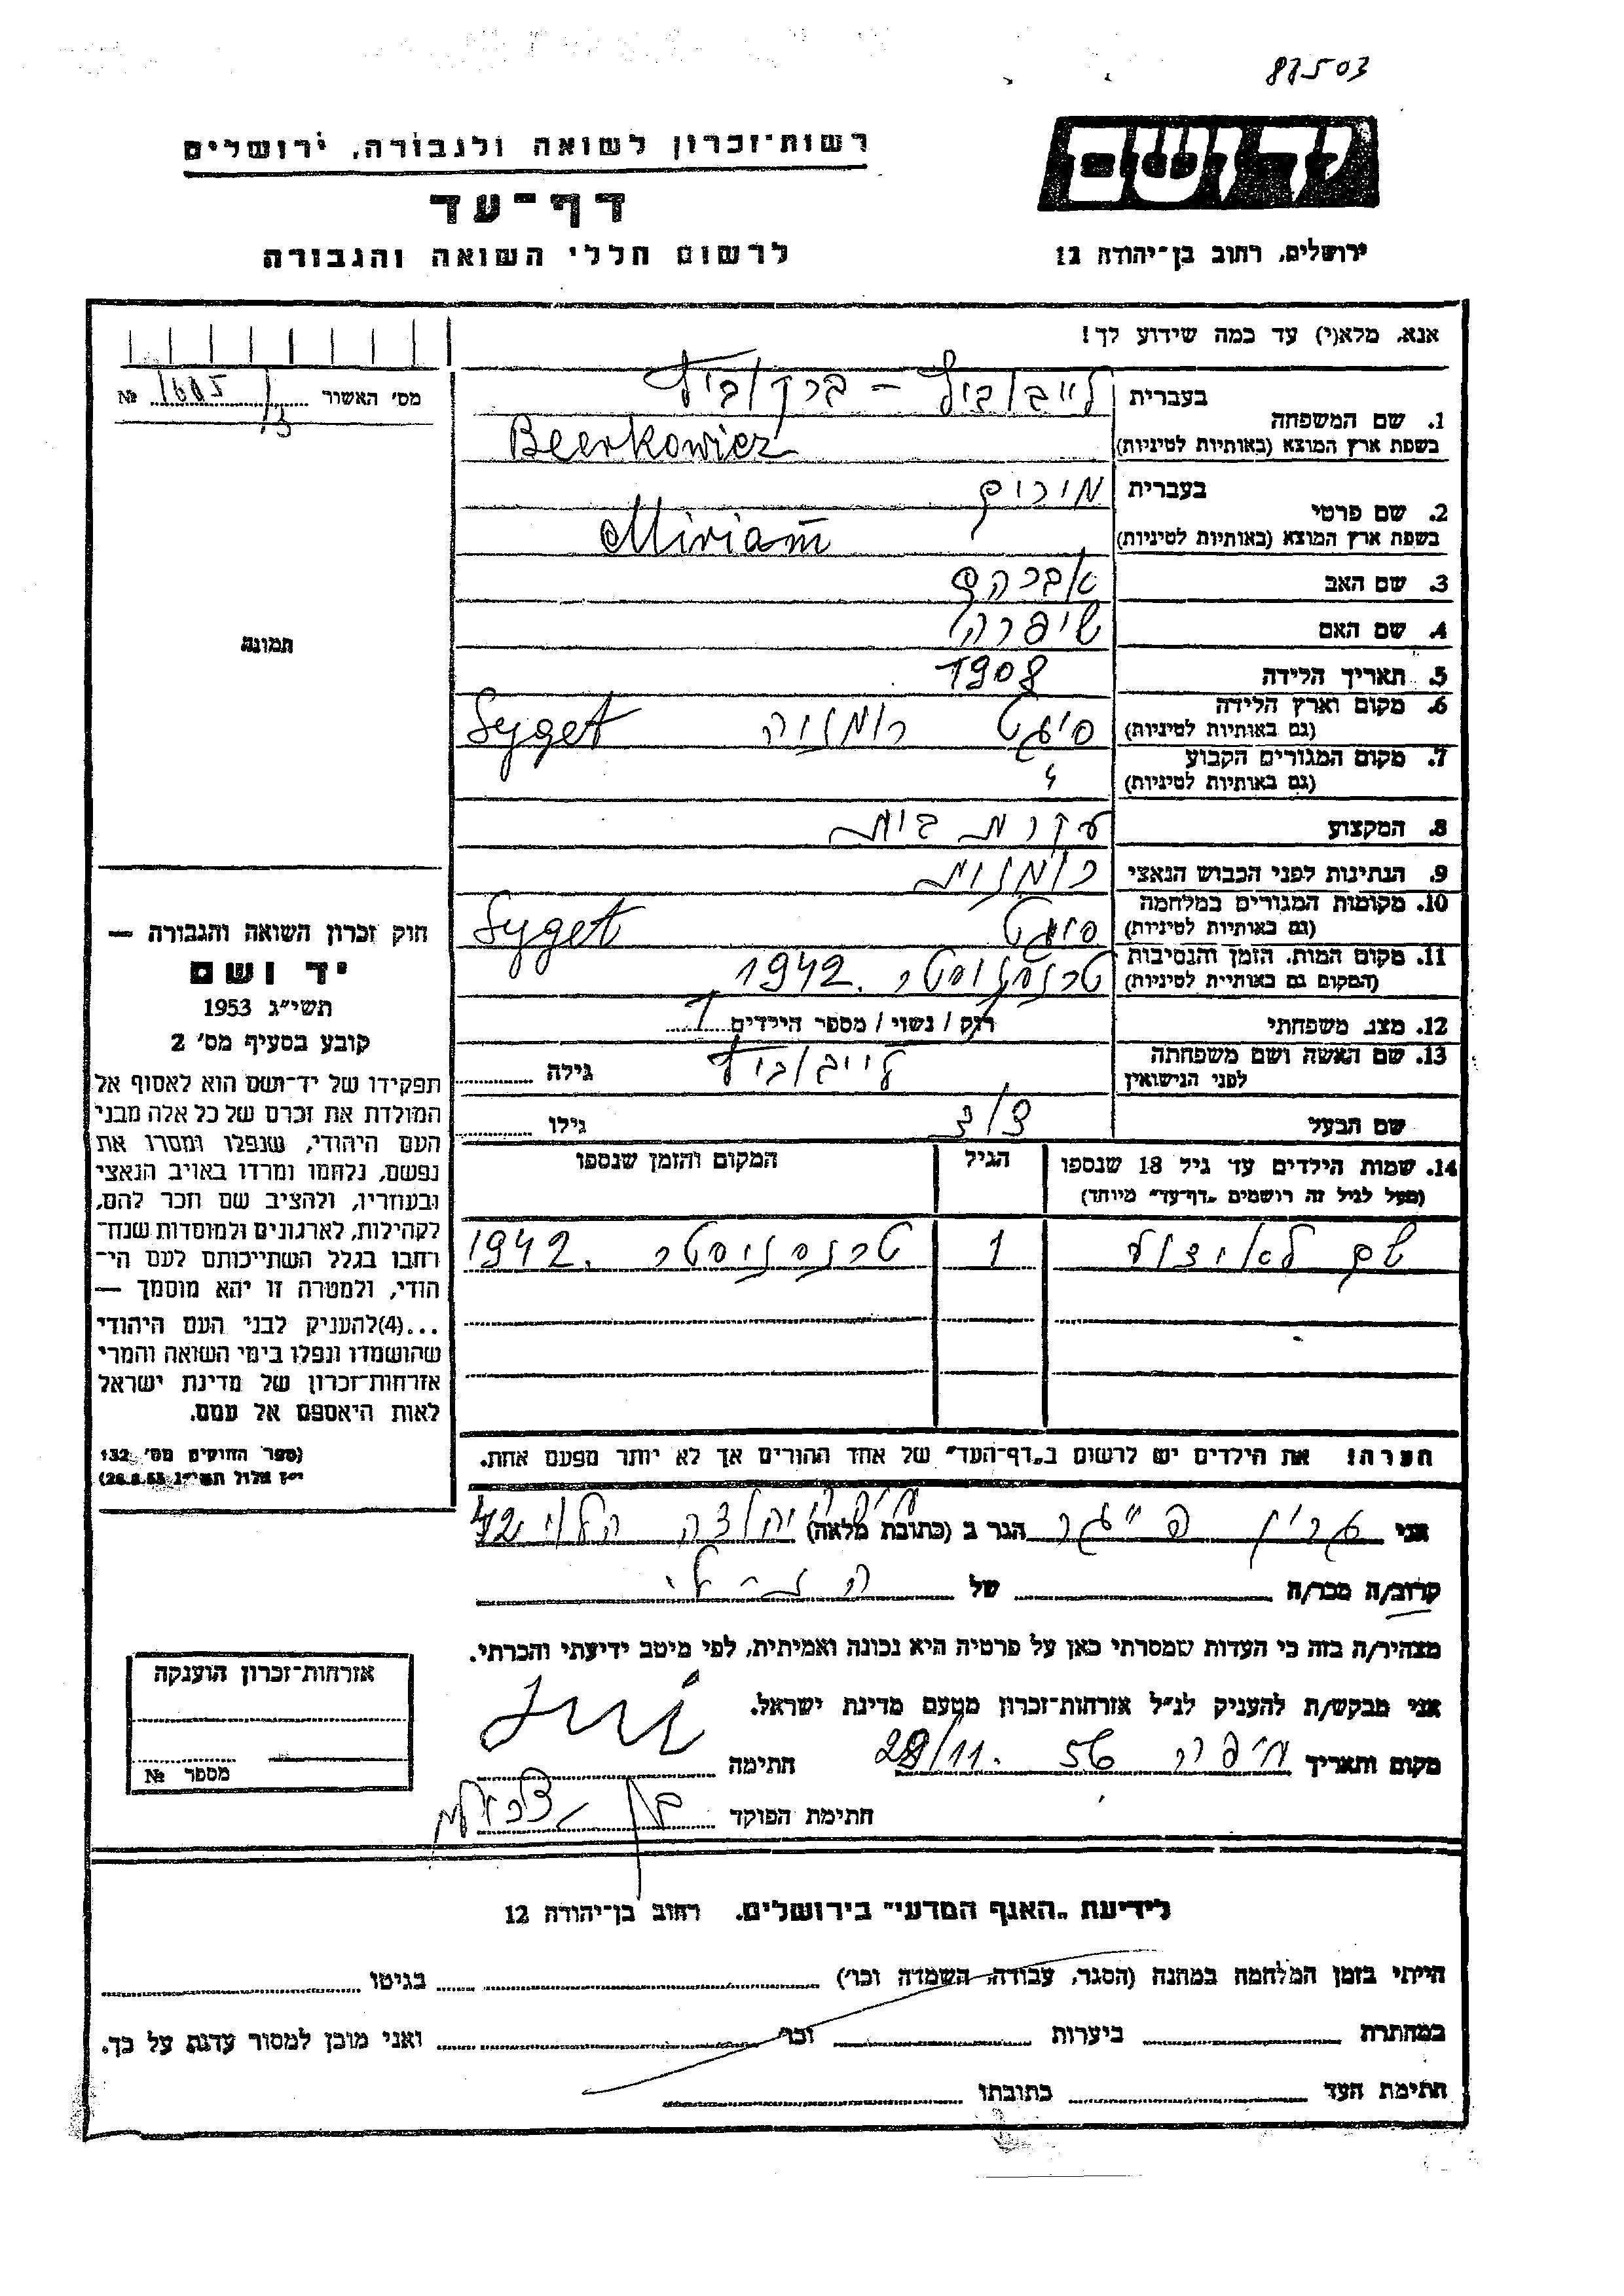 87503
רשות־זכרון לשואה ולגבורה, ירושלים
יד ושם
דף־עד
לרשום חללי השואה והגבורה
ירושלים, רחוב בן־יהודה 12
אנא, מלא(י) עד כמה שידוע לך!
מס' האשור 1605/3 №
1. שם המשפחה
בעברית לייבוביץ - ברקוביץ
בשפת ארץ המוצא (באותיות לטיניות) Beerkowicz
2. שם פרטי
בעברית מירים
בשפת ארץ המוצא (באותיות לטיניות) Miriam
3. שם האב אברהם
4. שם האם שיפרה
תמונה
5. תאריך הלידה 1908
6. מקום וארץ הלידה (גם באותיות לטיניות) סיגט רומניה Syget
7. מקום המגורים הקבוע (גם באותיות לטיניות) "
8. המקצוע עקרת בית
9. הנתינות לפני הכבוש הנאצי רומנית
10. מקומות המגורים במלחמה (גם באותיות לטיניות) סיגט Syget
11. מקום המות, הזמן והנסיבות (המקום גם באותיית לטיניות) טרנסניסטר. 1942
12. מצב משפחתי רוק / נשוי / מספר הילדים 1
13. שם האשה ושם משפחתה לפני הנישואין לייבוביץ גילה
שם הבעל גילו
14. שמות הילדים עד גיל 18 שנספו
(מעל לגיל זה רושמים „דף־עד" מיוחד)
הגיל
המקום והזמן שנספו
שם לא ידוע 1 טרנסניסטר. 1942
הערה! את הילדים יש לרשום ב„דף־העד" של אחד ההורים אך לא יותר מפעם אחת.
חוק זכרון השואה והגבורה —
יד ושם
תשי״ג 1953
קובע בסעיף מס' 2
תפקידו של יד־ושם הוא לאסוף אל
המולדת את זכרם של כל אלה מבני
העם היהודי, שנפלו ומסרו את
נפשם, נלחמו ומרדו באויב הנאצי
ובעוזריו, ולהציב שם וזכר להם,
לקהילות, לארגונים ולמוסדות שנח־
רבו בגלל השתייכותם לעם הי־
הודי, ולמטרה זו יהא מוסמך —
...(4)להעניק לבני העם היהודי
שהושמדו ונפלו בימי השואה והמרי
אזרחות־זכרון של מדינת ישראל
לאות היאספם אל עמם.
(ספר החוקים מס' 132
י״ז אלול תשי״ג 28.8.53)
אני הגר ב (כתובת מלאה) חיפה יהודה הלוי 42
קרוב/ה מכר/ה של
מצהיר/ה בזה כי העדות שמסרתי כאן על פרטיה היא נכונה ואמיתית, לפי מיטב ידיעתי והכרתי.
אני מבקש/ת להעניק לנ״ל אזרחות־זכרון מטעם מדינת ישראל.
מקום ותאריך חיפה 28/11. 56 חתימה
חתימת הפוקד
אזרחות־זכרון הוענקה
מספר №
לידיעת „האגף המדעי" בירושלים. רחוב בן־יהודה 12
הייתי בזמן המלחמה במחנה (הסגר, עבודה, השמדה וכו') בגיטו
במחתרת ביערות וכו' ואני מוכן למסור עדות על כך.
חתימת העד כתובתו